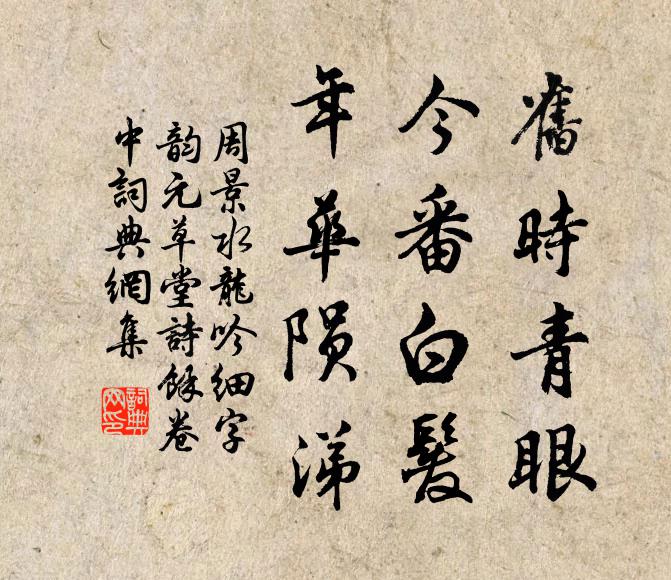 舊時青眼
今番白髮
年華陨涕
周景水龍吟細字
韵元草堂詩餘卷
中詞典網集
詞典
网印